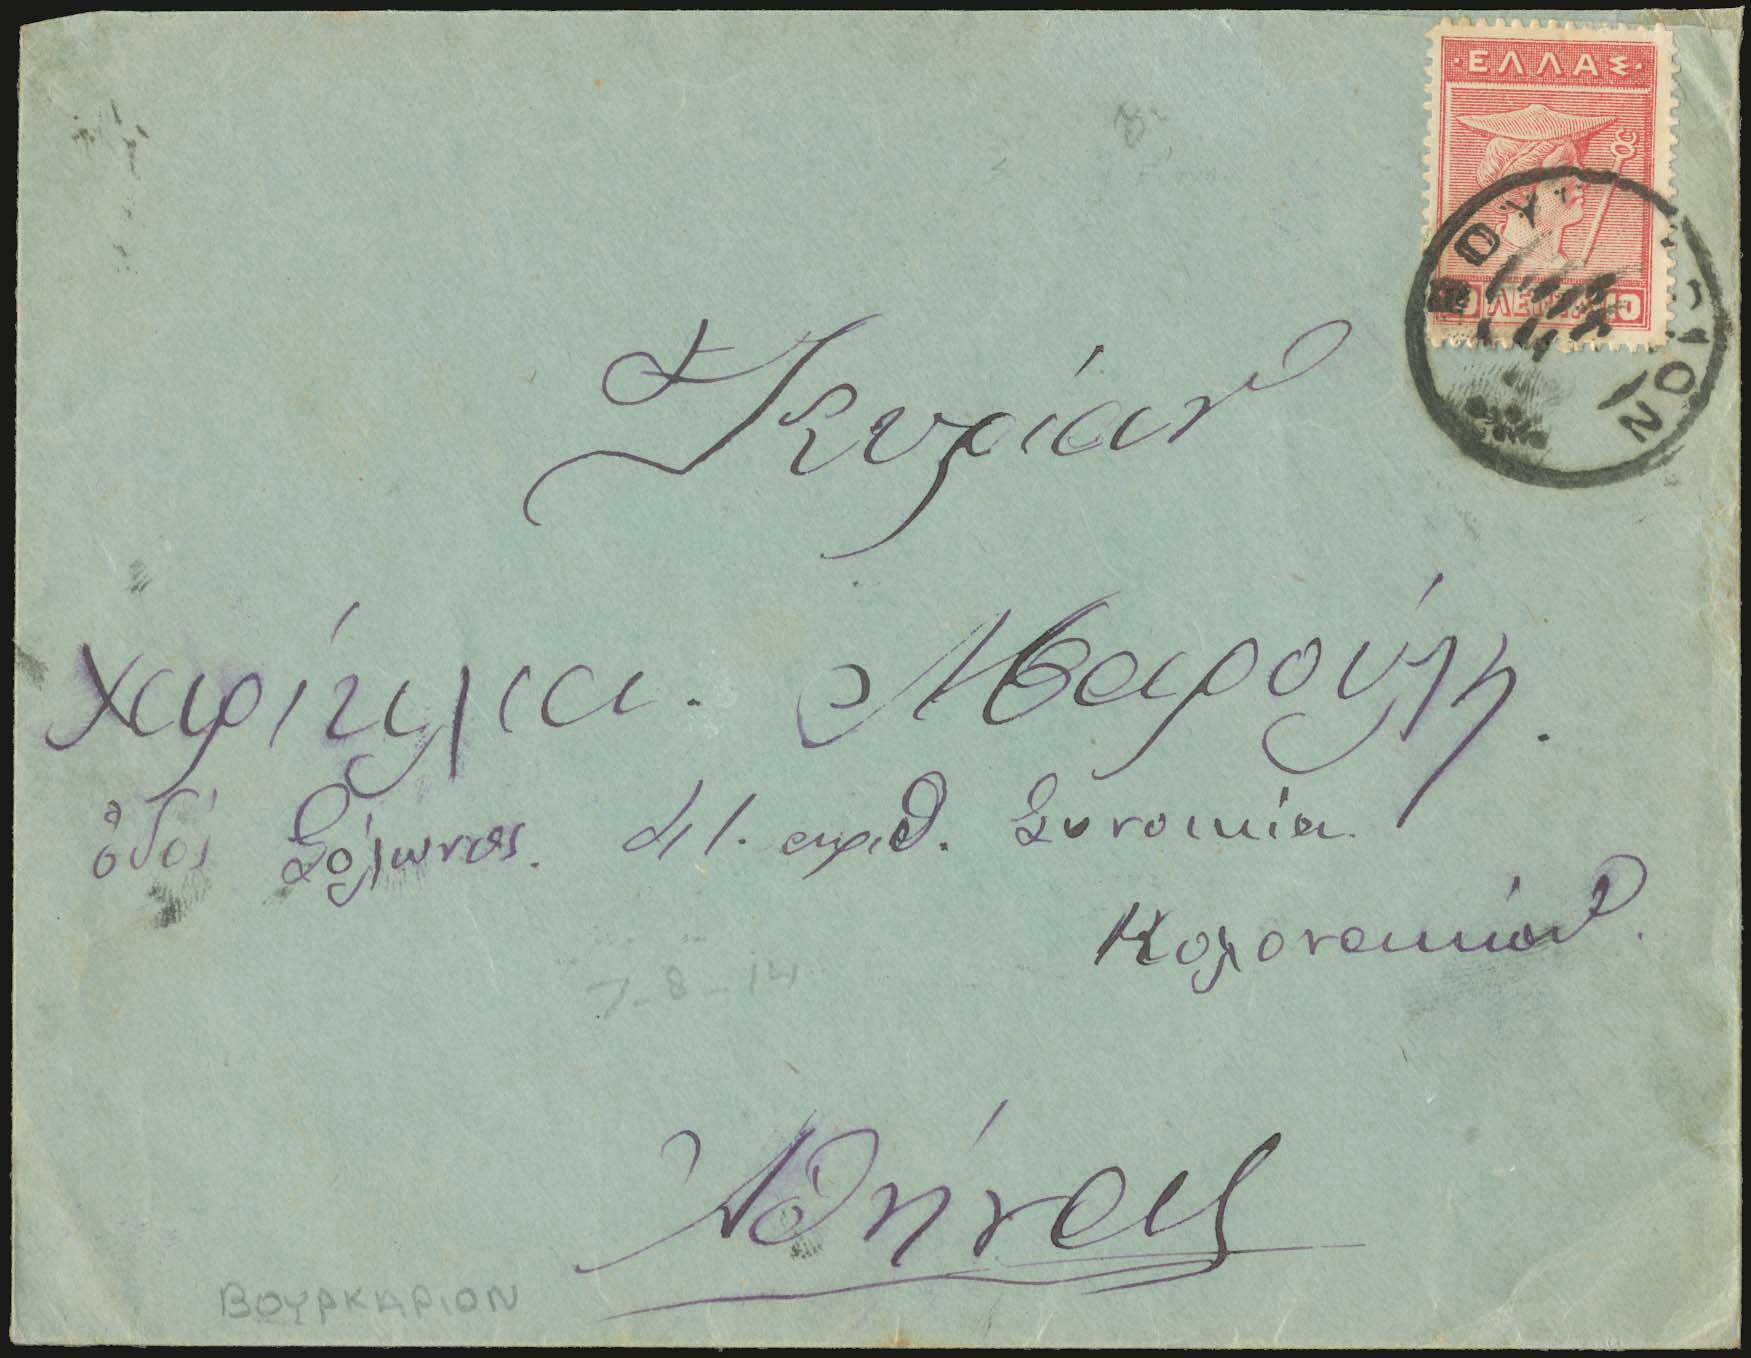 ·ΕΛΛΑΣ·
ΛΕΠΤΑ
ΒΟΥ ΙΟΝ
Κυρίαν
Χαρίκλιαι. Μπαρούλη.
ὁδός Σόλωνος. 41. αριθ. Συνοικία
Κολονακίου.
7-8-14
Ἀθήνας
ΒΟΥΡΚΑΡΙΟΝ